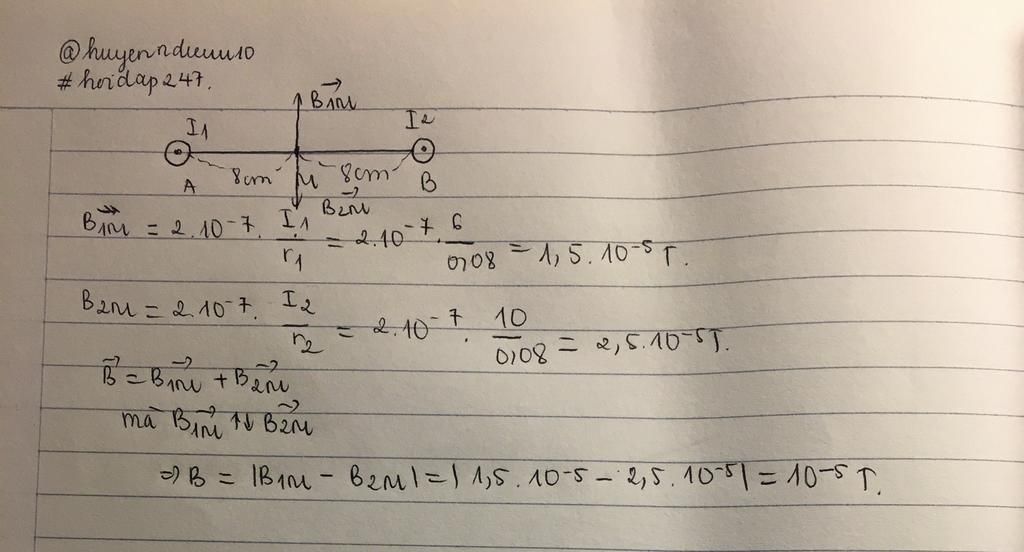 @huyenndieuu10
#hoidap247.
B⃗1M
I1
I2
8cm
8cm
A
M
B
B⃗2M
B⃗1M = 2.10⁻⁷. I1/r1 = 2.10⁻⁷. 6/0,08 = 1,5.10⁻⁵ T.
B2M = 2.10⁻⁷. I2/r2 = 2.10⁻⁷. 10/0,08 = 2,5.10⁻⁵T.
B⃗ = B⃗1M + B⃗2M
mà B⃗1M ↑↓ B⃗2M
⇒ B = |B1M - B2M| = | 1,5.10⁻⁵ - 2,5.10⁻⁵| = 10⁻⁵ T.